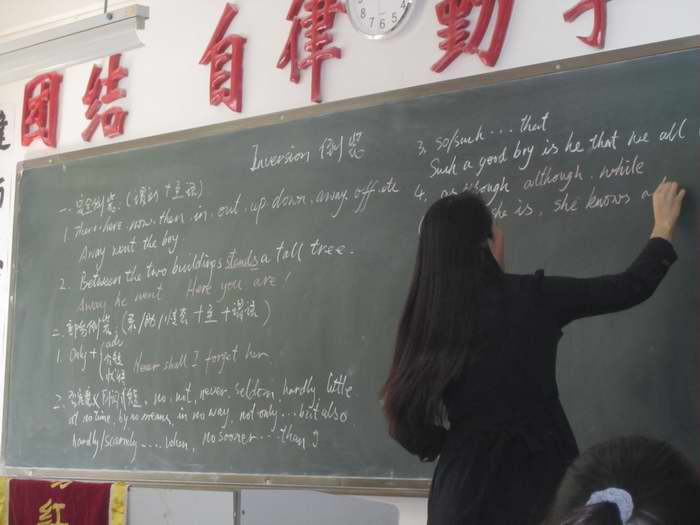 团结 自律 勤
Inversion 倒装
一、完全倒装 (谓语+主语)
1. There, here, now, then, in, out, up, down, away, off, etc
Away went the boy
2. Between the two buildings stands a tall tree.
Away he went Here you are!
二、部分倒装 (系/助/情态+主+谓语)
1. Only +
Never shall I forget him
2. no, not, never, seldom, hardly, little
at no time, by no means, in no way, not only...but also
hardly/scarcely....when, no sooner...than
3. so/such...that
Such a good boy is he that we all
4. although, while
she is, she knows a
红